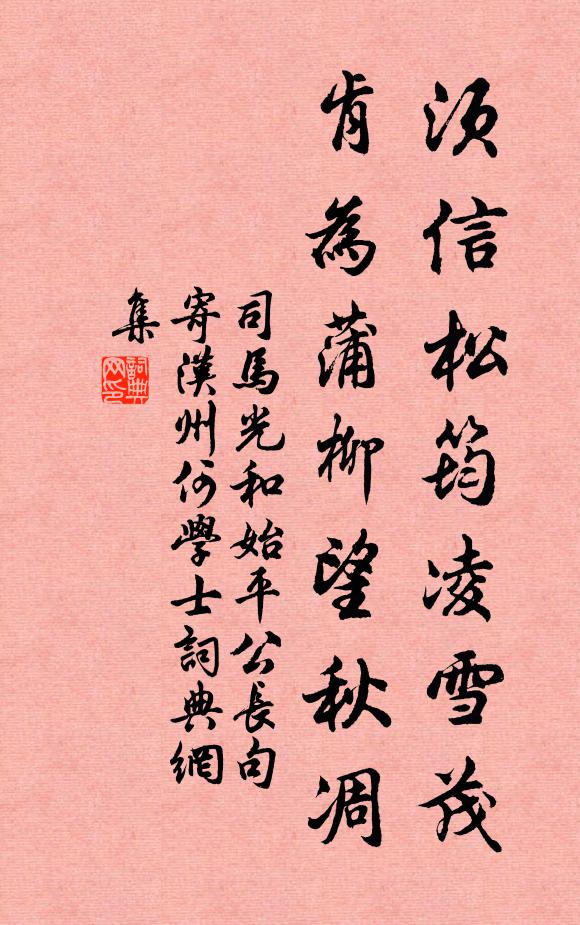 須信松筠凌雪茂
肯為蒲柳望秋凋
司馬光和始平公長句
寄漢州何學士詞典網
集
詞典網印